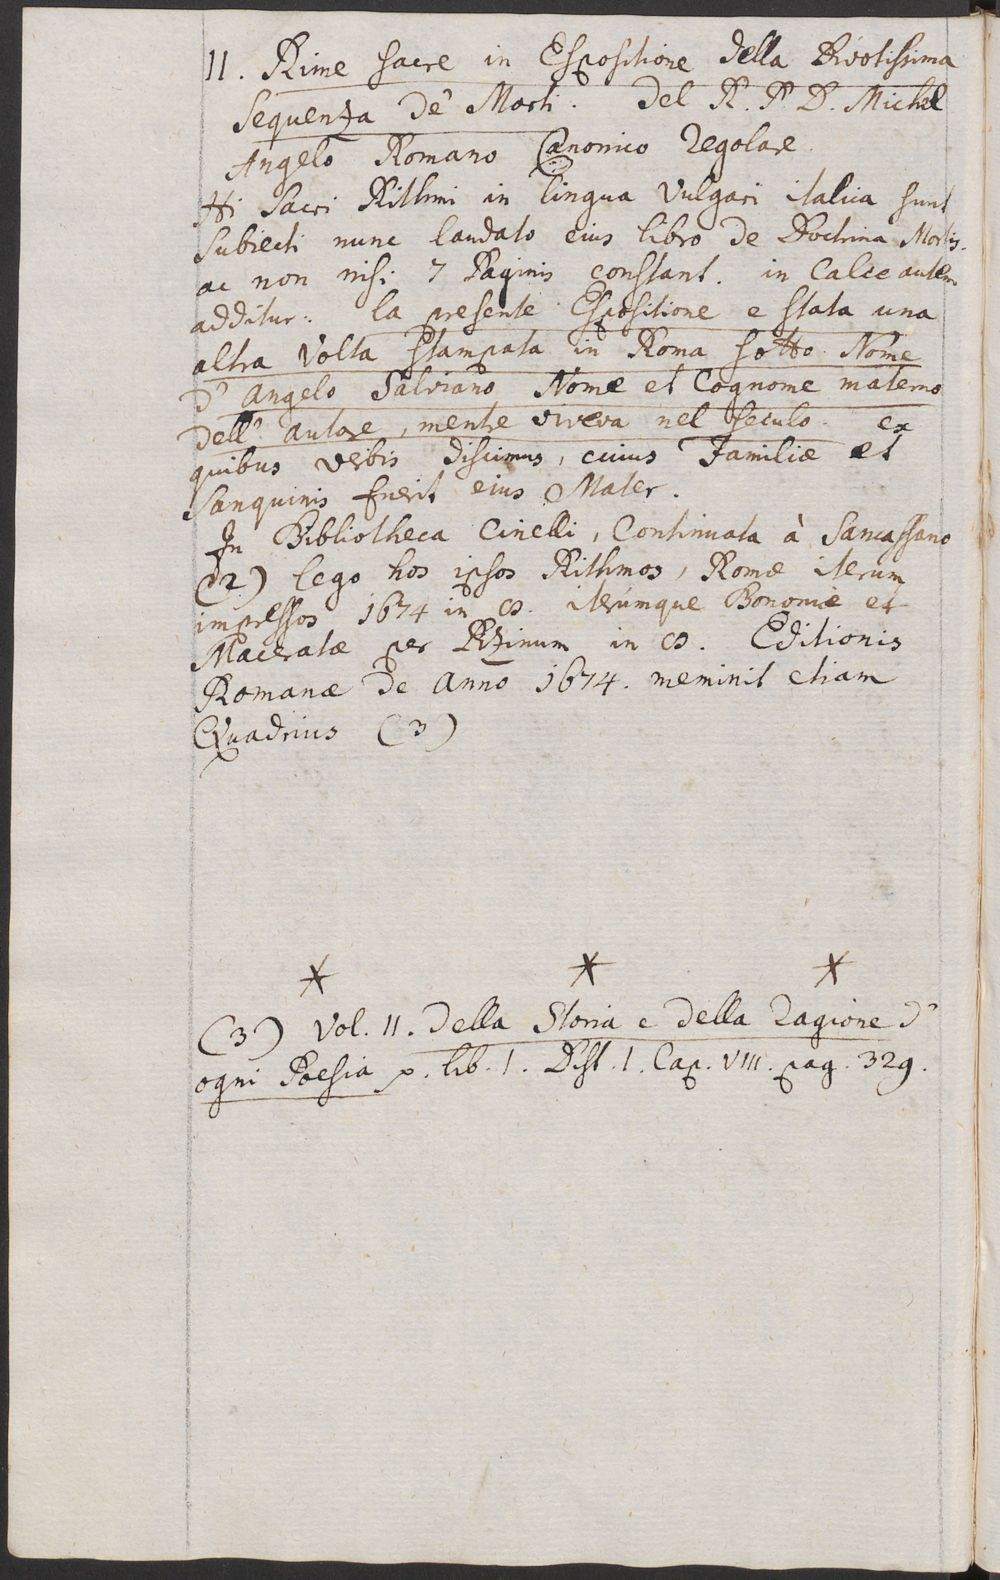 11. Rime sacre in Espositione della Divotissima
Sequenza de' Morti. Del R. P. D. Michel
Angelo Romano Canonico Regolare.
Hi Sacri Rithmi in lingua Vulgari italica sunt
Subiecti nunc laudato eius libro de Doctrina Mortis.
ac non nisi 7 Paginis constant. in Calce autem
additur: la presente Espositione e stata una
altra Volta stampata in Roma sotto Nome
d' Angelo Salviano Nome et Cognome materno
dell' autore, mentre viveva nel seculo. ex
quibus verbis discimus, cuius Familiæ et
Sanguinis fuerit eius Mater.
In Bibliotheca Cinelli, Continuata à Sancassano
(2) lego hos ipsos Rithmos, Romæ iterum
impressos 1674 in 8. iterúmque Bononiæ et
Maceratæ per in 8. Editionis
Romanæ de Anno 1674. meminit etiam
Quadrius (3)
* * *
(3) Vol. II. della Storia e della Ragione d'
ogni Poesia p. lib. 1. Dist. 1. Cap. VIII. pag. 329.